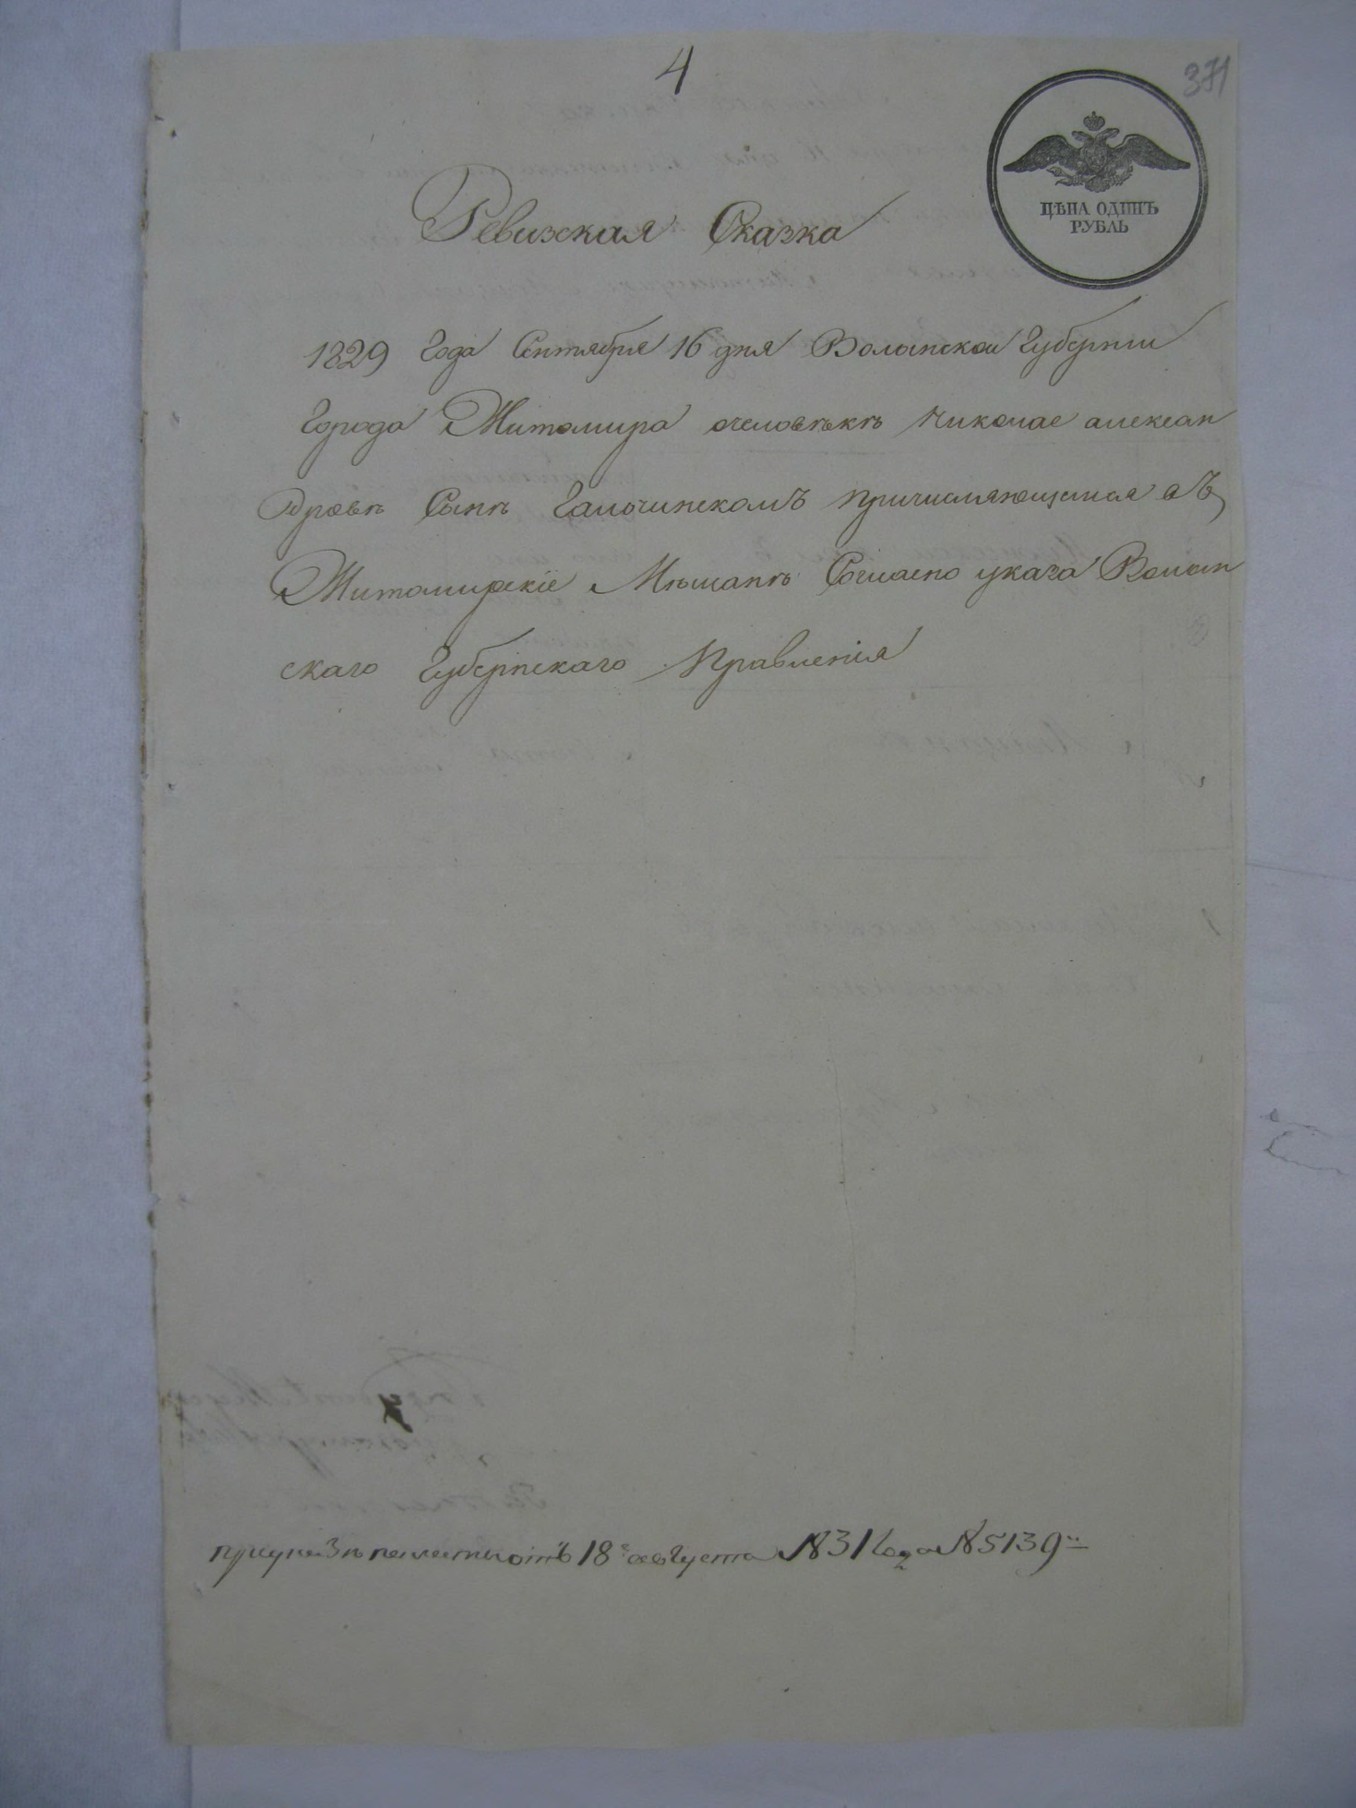 4
371
ЦѢНА ОДИНЪ
РУБЛЬ
Ревизская Сказка
1829 Года Сентября 16 дня Волынской Губернии
Города Житомира очеловѣкѣ Николае алексан
дровѣ Сынѣ Галочинскомъ причисляющемся въ
Житомирскіе Мѣщанѣ Согласно указа Волын
скаго Губернскаго Правленія
приуказѣ палаты отъ 18 августа 1831 года № 5139